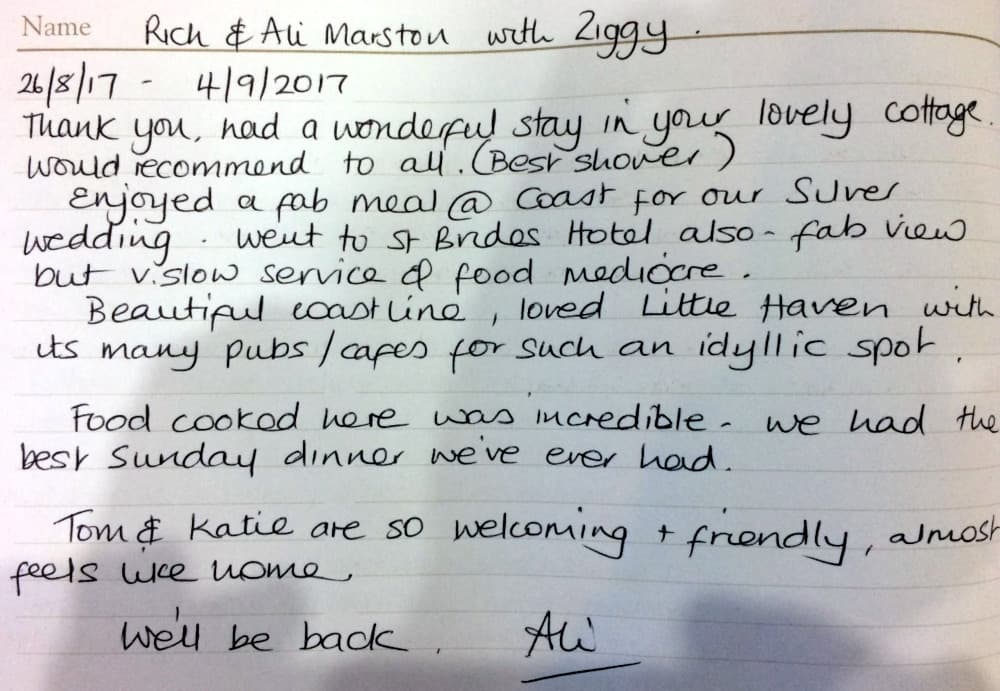 Name Rich & Ali Marston with Ziggy.
26/8/17 - 4/9/2017
Thank you, had a wonderful stay in your lovely cottage.
Would recommend to all. (Best shower)
Enjoyed a fab meal @ Coast for our Silver
wedding. Went to St Brides Hotel also - fab view
but v.slow service & food mediocre.
Beautiful coastline, loved Little Haven with
its many pubs/cafes for such an idyllic spot.
Food cooked here was incredible - we had the
best Sunday dinner we've ever had.
Tom & Katie are so welcoming + friendly, almost
feels like home.
We'll be back. Ali